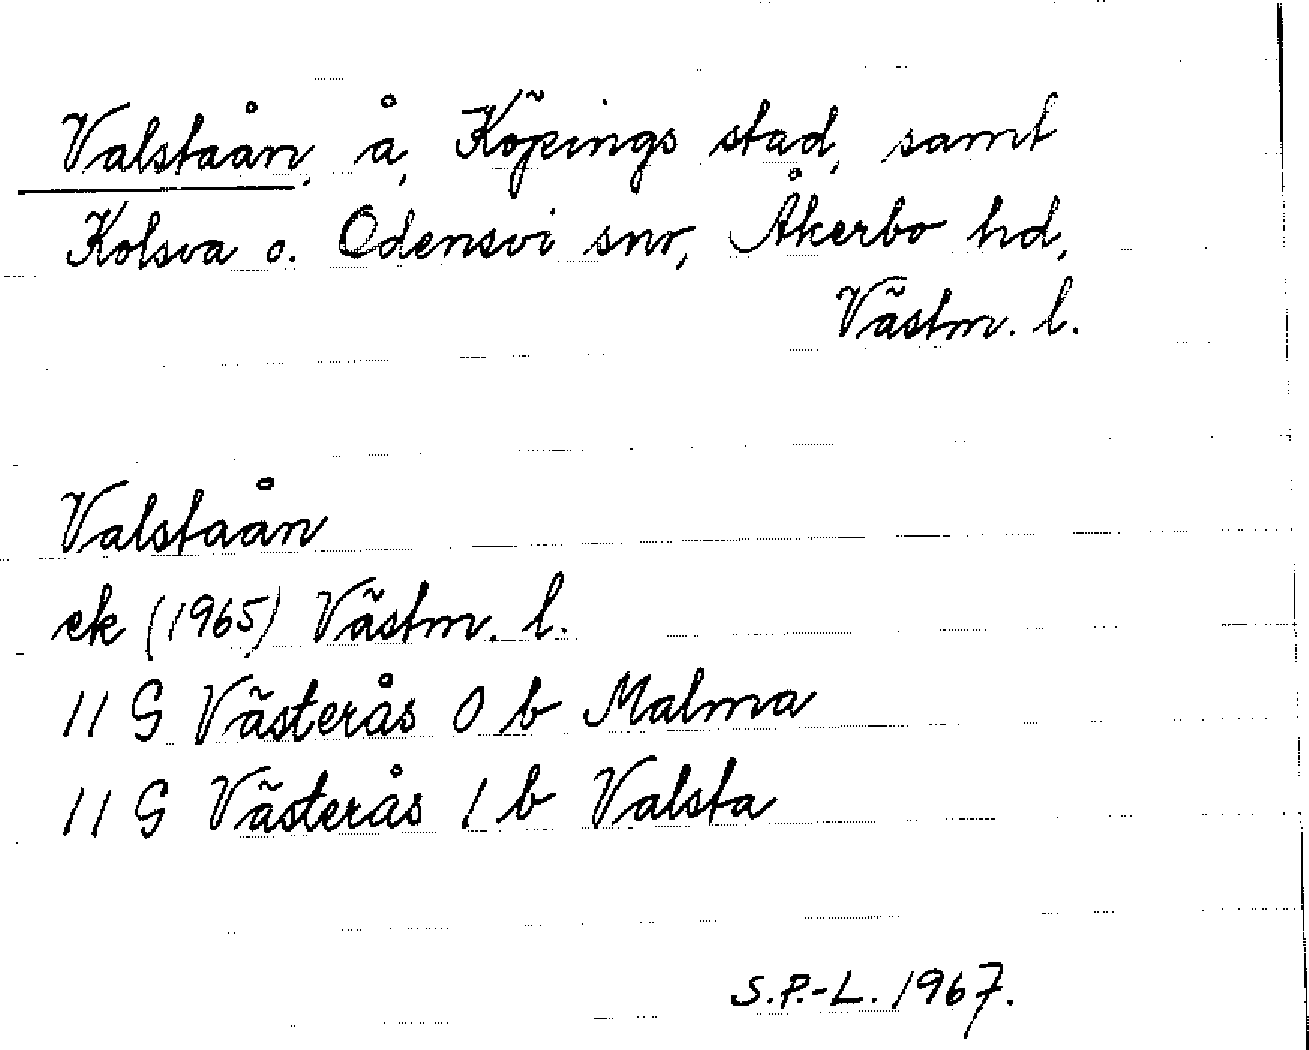 Valstaån, å, Köpings stad, samt
Kolsva o. Odensvi snr, Åkerbo hd,
Västm. l.
Valstaån
ek (1965) Västm. l.
11 G Västerås 0 b Malma
11 G Västerås 1 b Valsta
S.P.-L. 1967.